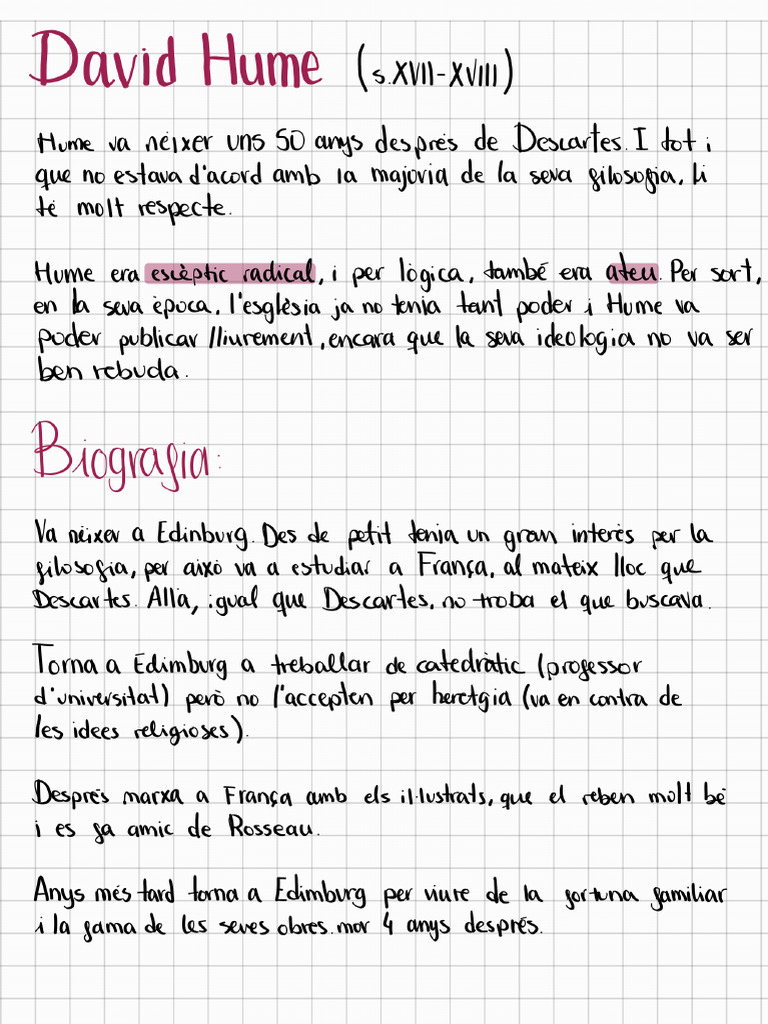 David Hume (s.XVII-XVIII)
Hume va néixer uns 50 anys després de Descartes. I tot i
que no estava d'acord amb la majoria de la seva filosofia, li
té molt respecte.
Hume era escèptic radical, i per lògica, també era ateu. Per sort,
en la seva època, l'església ja no tenia tant poder i Hume va
poder publicar lliurement, encara que la seva ideologia no va ser
ben rebuda.
Biografia:
Va néixer a Edinburg. Des de petit tenia un gran interès per la
filosofia, per això va a estudiar a França, al mateix lloc que
Descartes. Allà, igual que Descartes, no troba el que buscava.
Torna a Edimburg a treballar de catedràtic (professor
d'universitat) però no l'accepten per heretgia (va en contra de
les idees religioses).
Després marxa a França amb els il·lustrats, que el reben molt bé
i es fa amic de Rosseau.
Anys més tard torna a Edimburg per viure de la fortuna familiar
i la fama de les seves obres. mor 4 anys després.